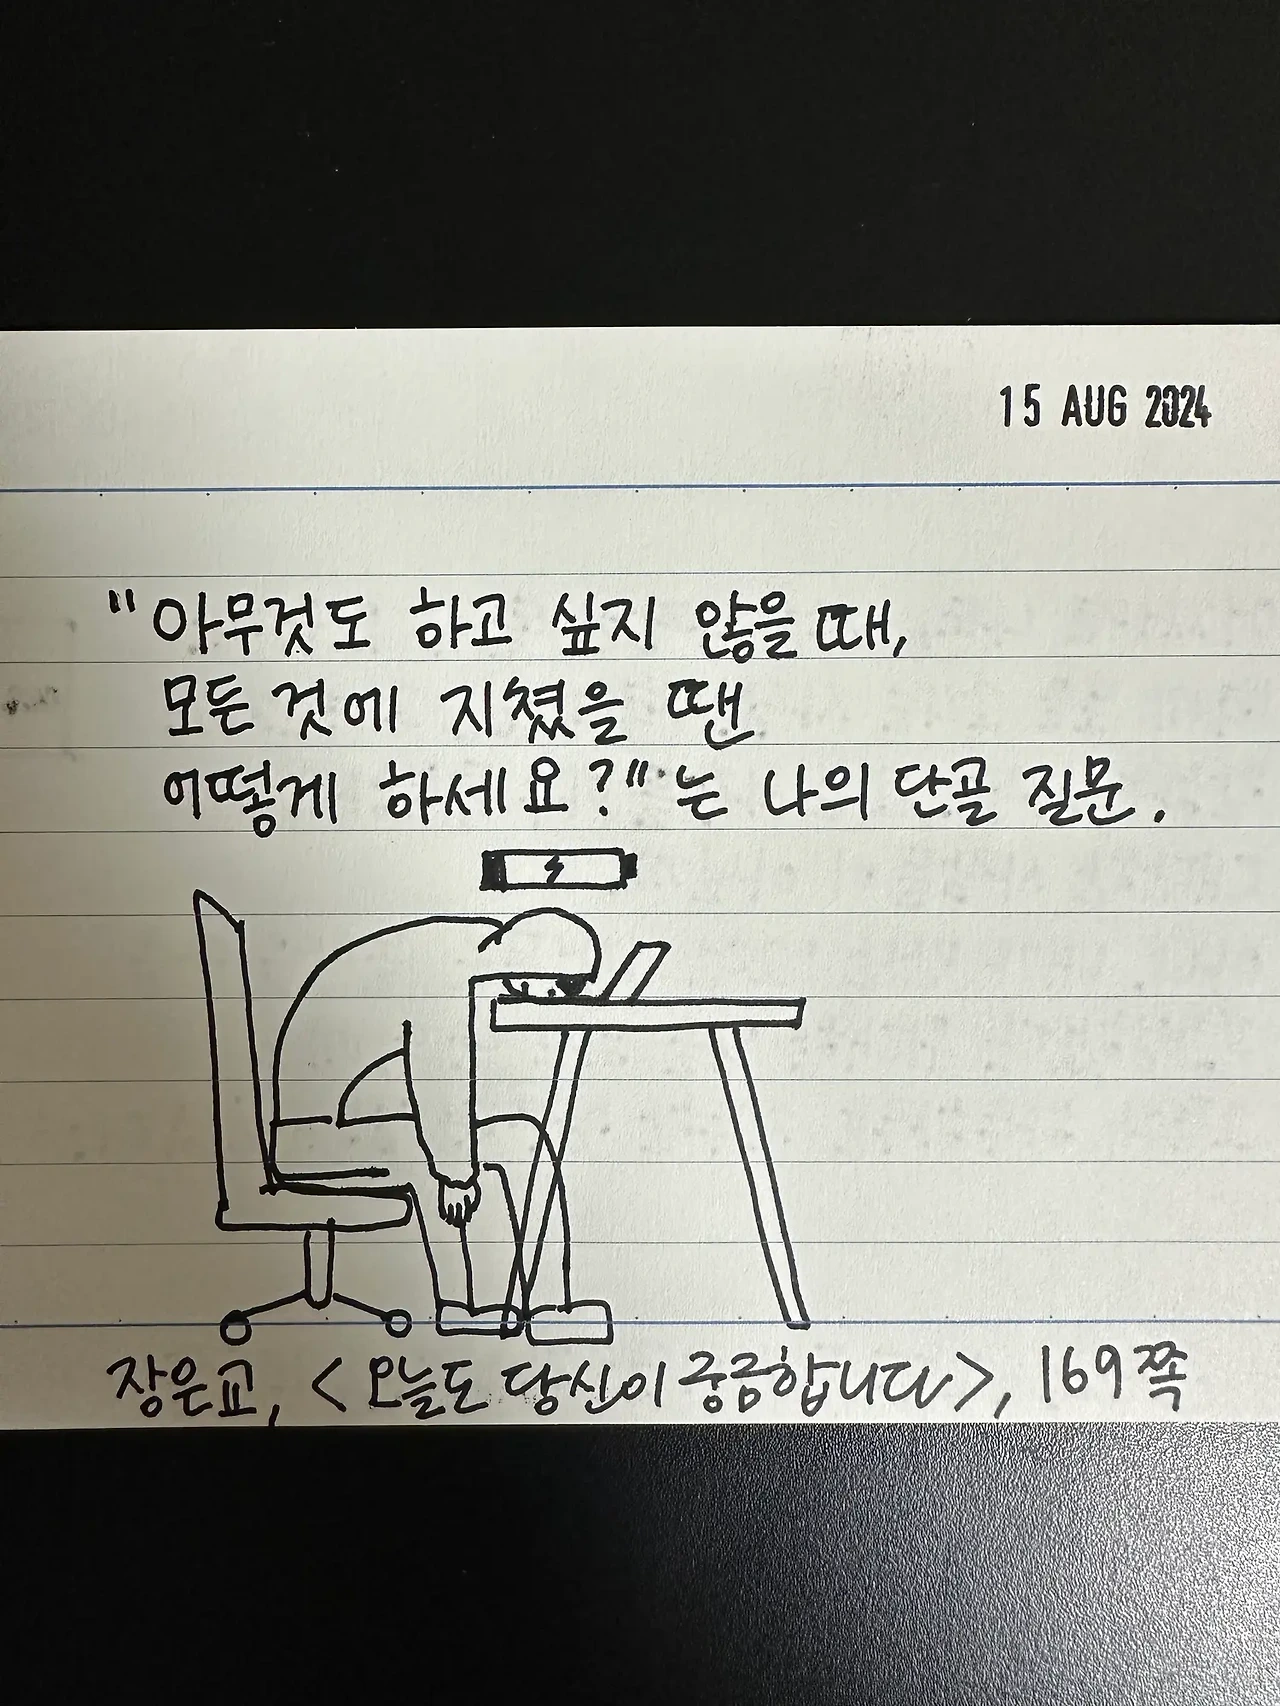 15 AUG 2024
"아무것도 하고 싶지 않을 때,
모든 것에 지쳤을 땐
어떻게 하세요?"는 나의 단골 질문.
장은교, <오늘도 당신이 궁금합니다>, 169쪽